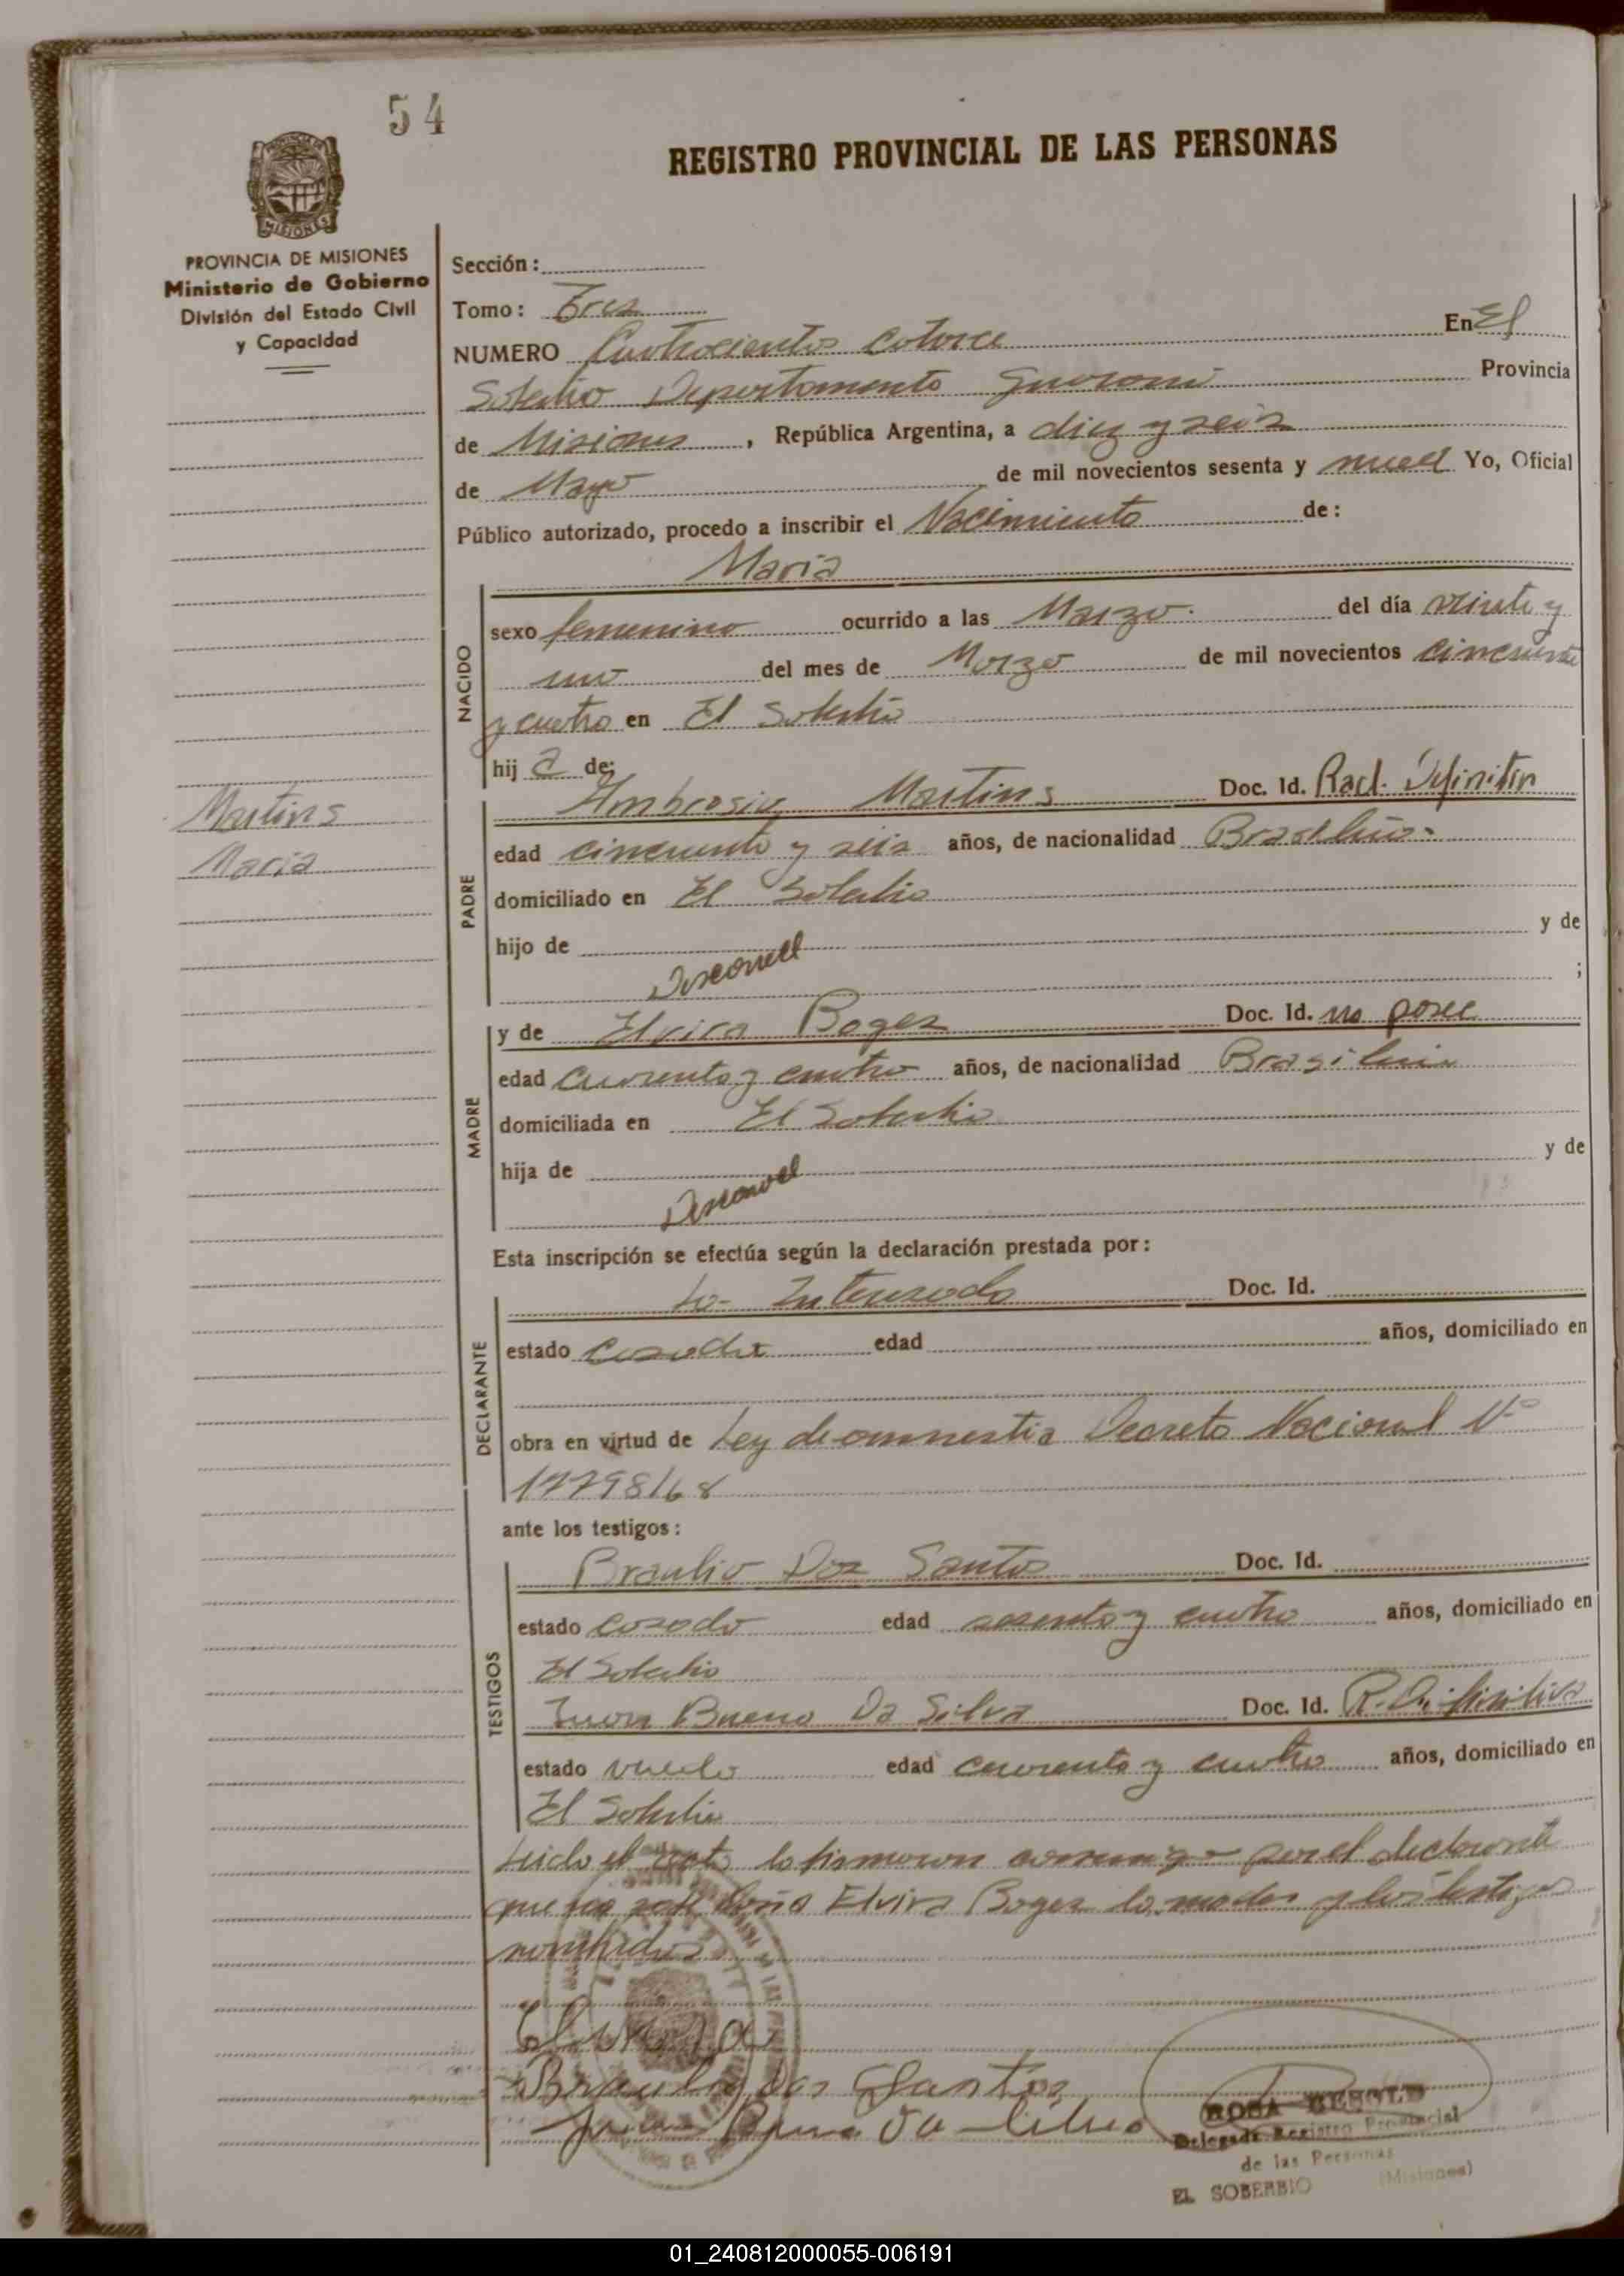 54
REGISTRO PROVINCIAL DE LAS PERSONAS
MISIONES
PROVINCIA DE MISIONES
Ministerio de Gobierno
División del Estado Civil
y Capacidad
Sección:
Tomo: Tres
NUMERO Cuatrocientos catorce En El
Soberbio Departamento Guarani Provincia
de Misiones, República Argentina, a diez y seis
de Mayo de mil novecientos sesenta y nueve Yo, Oficial
Público autorizado, procedo a inscribir el Nacimiento de:
Maria
NACIDO
sexo femenino ocurrido a las Marzo. del día veinte y
uno del mes de Marzo de mil novecientos cincuenta
y cuatro en El Soberbio
hij a de:
Martins
Maria
PADRE
Ambrosio Martins Doc. Id. Rad. Definitiv
edad cincuenta y seis años, de nacionalidad Brasileña
domiciliado en El Soberbio
hijo de y de
Desconoce ;
MADRE
y de Elvira Boges Doc. Id. no posee
edad cuarenta y cuatro años, de nacionalidad Brasileña
domiciliada en El Soberbio
hija de y de
Desconoce
Esta inscripción se efectúa según la declaración prestada por:
DECLARANTE
La Interesada Doc. Id.
estado casada edad años, domiciliado en
obra en virtud de Ley de amnestia Decreto Nacional Nº
17798/68
ante los testigos:
TESTIGOS
Braulio Dos Santos Doc. Id.
estado casado edad sesenta y cuatro años, domiciliado en
El Soberbio
Juan Bueno Da Silva Doc. Id. R. Definitiva
estado viudo edad cuarenta y cuatro años, domiciliado en
El Soberbio
Leida el acta la firmaron conmigo por el declarante
que doña Elvira Boges la madre y los testigos
nombrados
Braulio dos Santos
Juan Bueno da Silva
ROSA
Delegada Registro Provincial
de las Personas
EL SOBERBIO (Misiones)
01_240812000055-006191